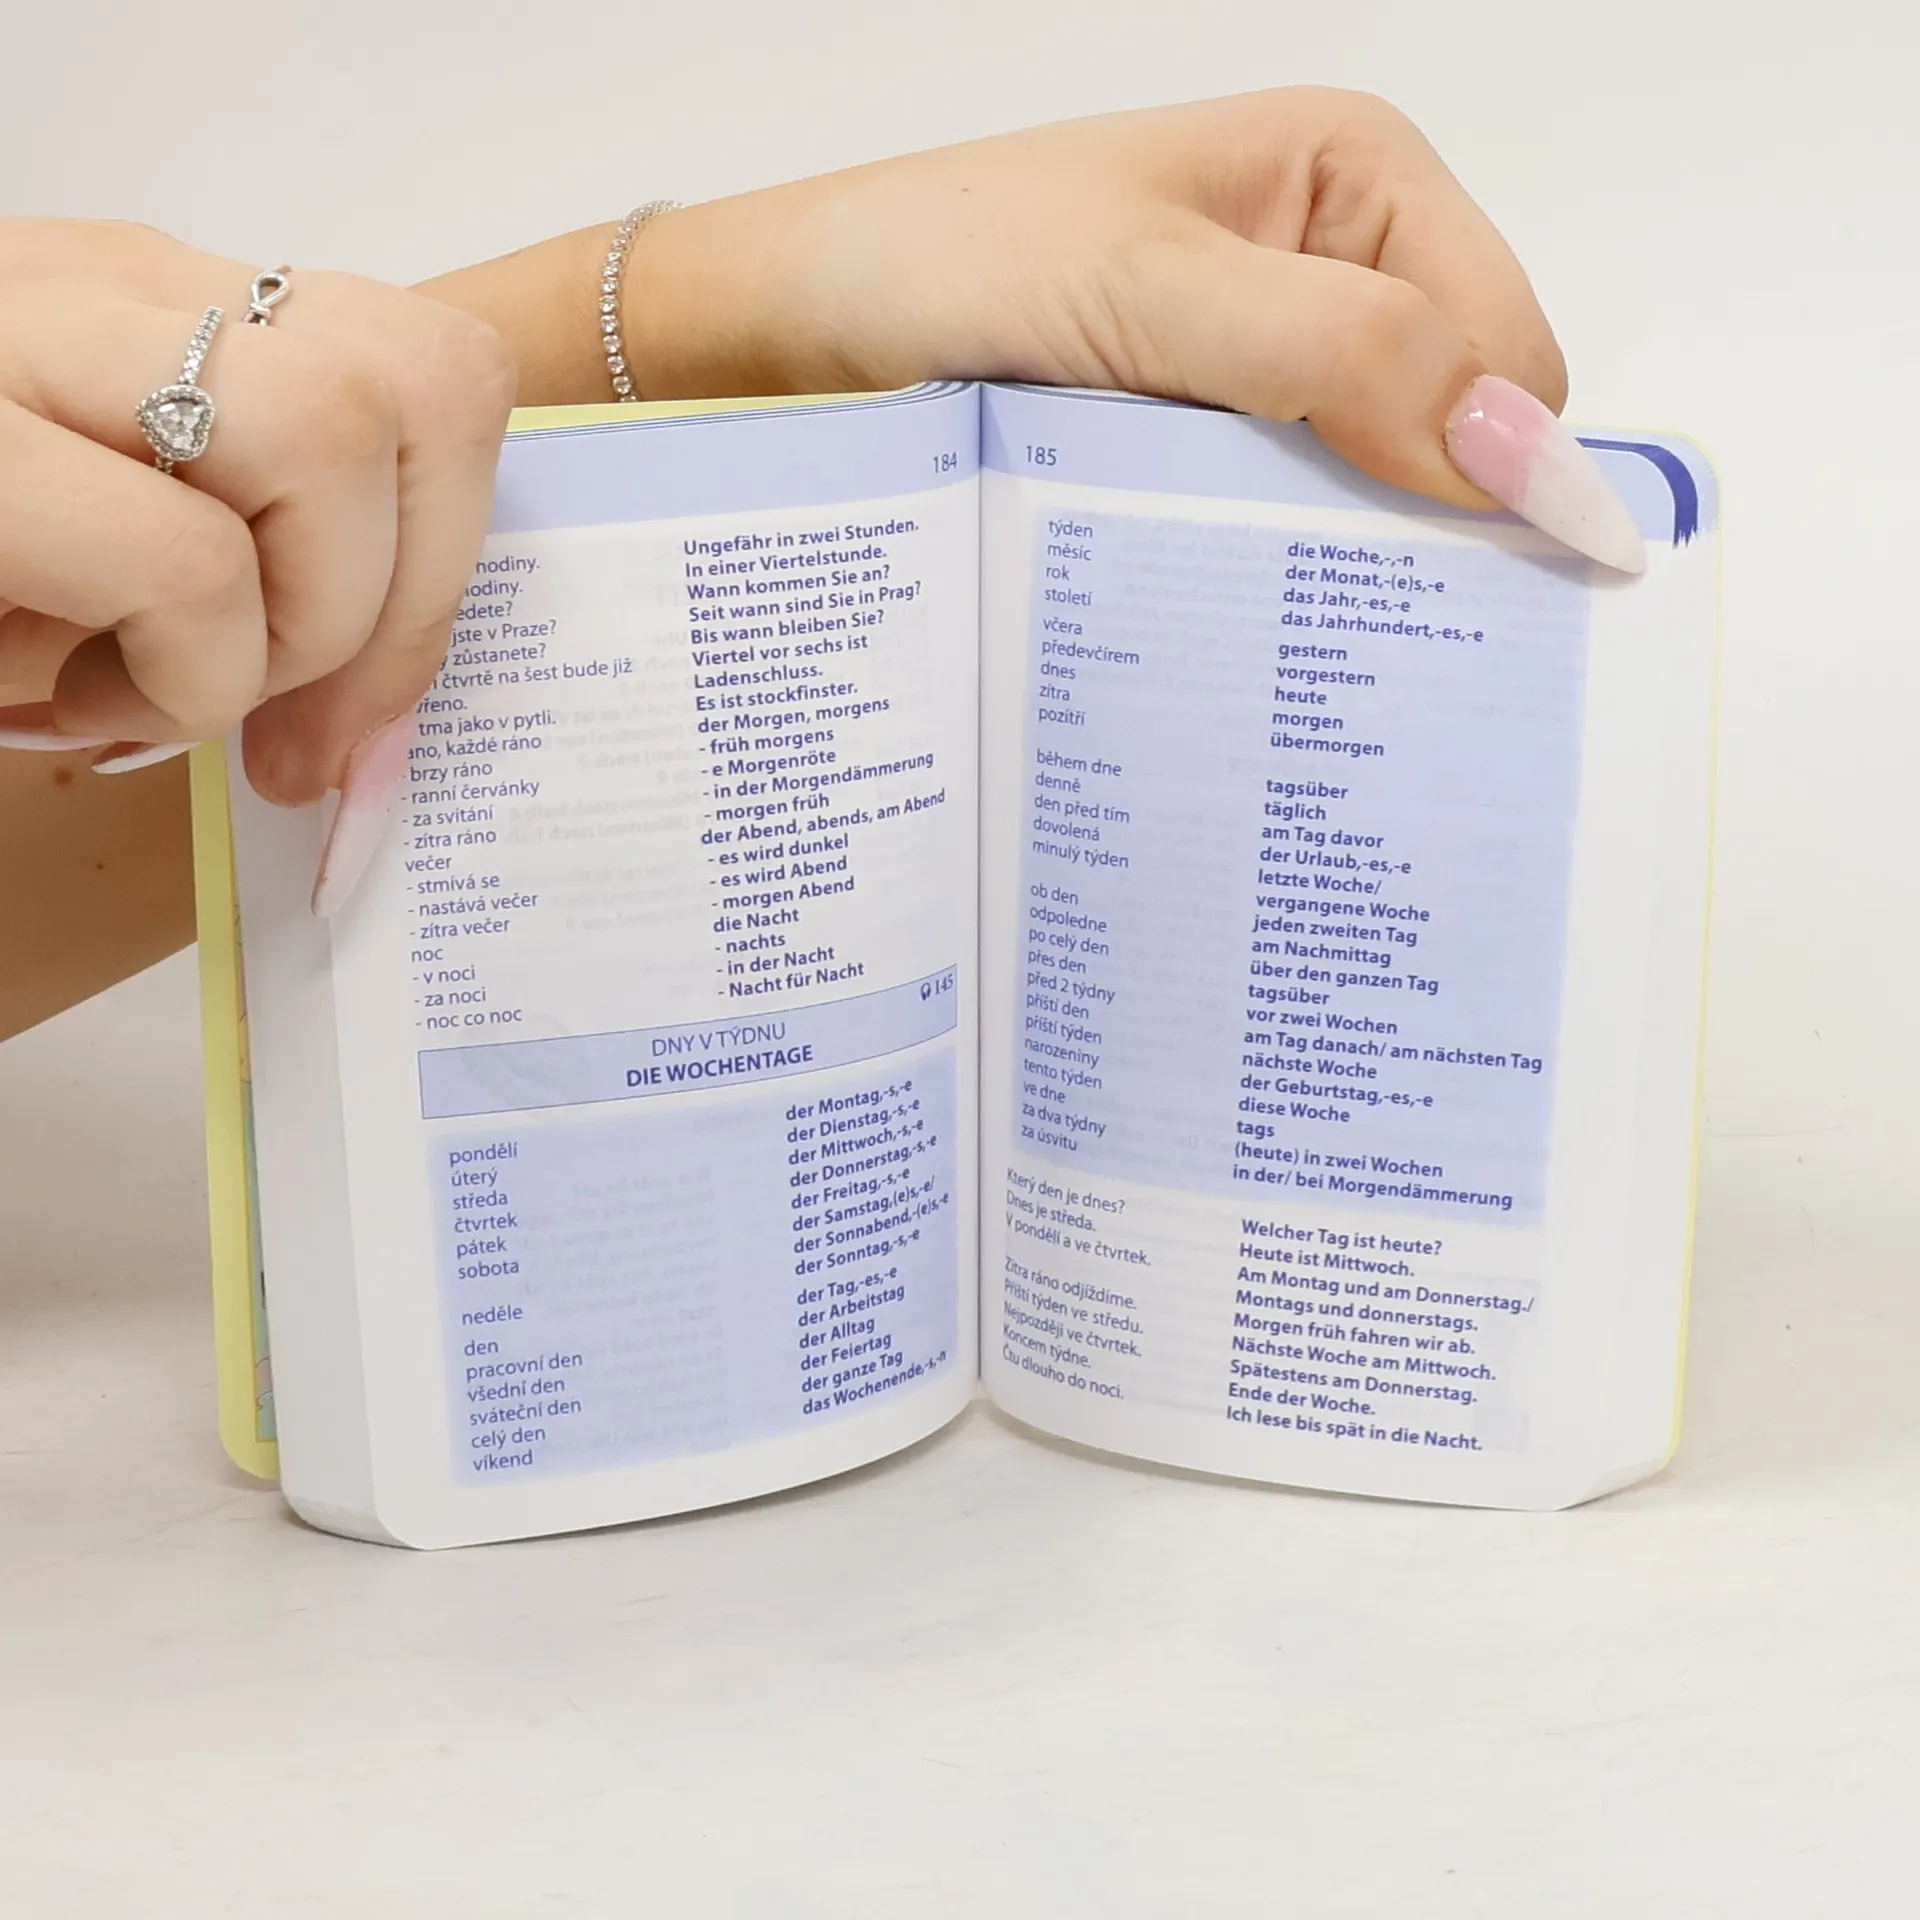 184
nodiny. Ungefähr in zwei Stunden.
In einer Viertelstunde.
Wann kommen Sie an?
jste v Praze? Seit wann sind Sie in Prag?
zůstanete? Bis wann bleiben Sie?
čtvrtě na šest bude již Viertel vor sechs ist
Ladenschluss.
tma jako v pytli. Es ist stockfinster.
každé ráno der Morgen, morgens
- brzy ráno - früh morgens
- ranní červánky - e Morgenröte
- za svítání - in der Morgendämmerung
- zítra ráno - morgen früh
večer der Abend, abends, am Abend
- stmívá se - es wird dunkel
- nastává večer - es wird Abend
- zítra večer - morgen Abend
noc die Nacht
- v noci - nachts
- za noci - in der Nacht
- noc co noc - Nacht für Nacht
145
DNY V TÝDNU
DIE WOCHENTAGE
pondělí der Montag,-s,-e
úterý der Dienstag,-s,-e
středa der Mittwoch,-s,-e
čtvrtek der Donnerstag,-s,-e
pátek der Freitag,-s,-e
sobota der Samstag,(e)s,-e/
der Sonnabend,-(e)s,-e
neděle der Sonntag,-s,-e
den der Tag,-es,-e
pracovní den der Arbeitstag
všední den der Alltag
sváteční den der Feiertag
celý den der ganze Tag
víkend das Wochenende,-s,-n
185
týden die Woche,-,-n
měsíc der Monat,-(e)s,-e
rok das Jahr,-es,-e
století das Jahrhundert,-es,-e
včera gestern
předevčírem vorgestern
dnes heute
zítra morgen
pozítří übermorgen
během dne tagsüber
denně täglich
den před tím am Tag davor
dovolená der Urlaub,-es,-e
minulý týden letzte Woche/
vergangene Woche
ob den jeden zweiten Tag
odpoledne am Nachmittag
po celý den über den ganzen Tag
přes den tagsüber
před 2 týdny vor zwei Wochen
příští den am Tag danach/ am nächsten Tag
příští týden nächste Woche
narozeniny der Geburtstag,-es,-e
tento týden diese Woche
ve dne tags
za dva týdny (heute) in zwei Wochen
za úsvitu in der/ bei Morgendämmerung
Který den je dnes? Welcher Tag ist heute?
Dnes je středa. Heute ist Mittwoch.
V pondělí a ve čtvrtek. Am Montag und am Donnerstag./
Montags und donnerstags.
Zítra ráno odjíždíme. Morgen früh fahren wir ab.
Příští týden ve středu. Nächste Woche am Mittwoch.
Nejpozději ve čtvrtek. Spätestens am Donnerstag.
Koncem týdne. Ende der Woche.
Čtu dlouho do noci. Ich lese bis spät in die Nacht.